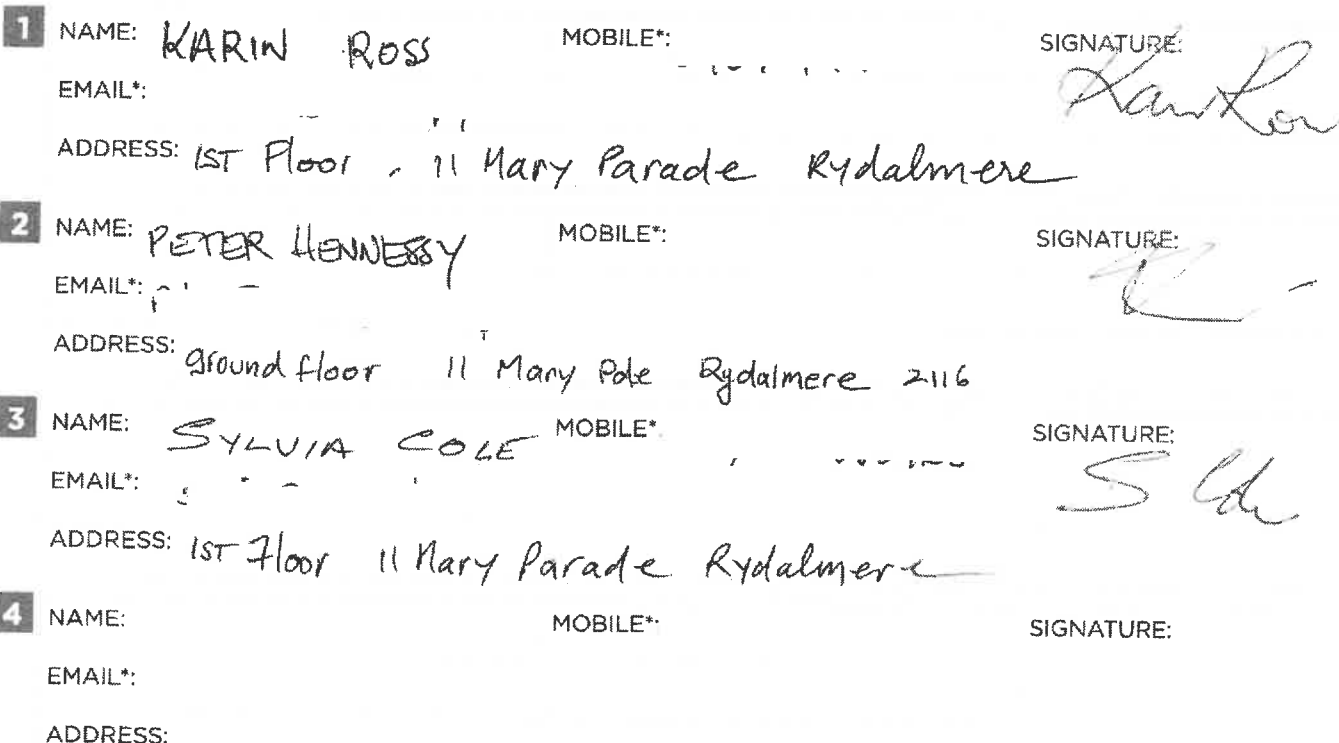 1 NAME: KARIN ROSS MOBILE*: SIGNATURE:
EMAIL*:
ADDRESS: 1ST Floor, 11 Mary Parade Rydalmere
2 NAME: PETER HENNESSY MOBILE*: SIGNATURE:
EMAIL*:
ADDRESS: ground floor 11 Mary Pde Rydalmere 2116
3 NAME: SYLVIA COLE MOBILE* SIGNATURE: S Cole
EMAIL*:
ADDRESS: 1ST Floor 11 Mary Parade Rydalmere
4 NAME: MOBILE*: SIGNATURE:
EMAIL*:
ADDRESS: